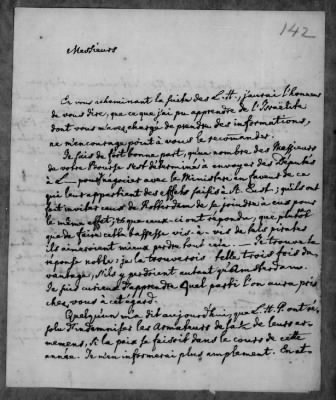 142
Messieurs
En vous acheminant la suite des L. H., j'aurai l'honneur
de vous dire, que ce que j'ai pu apprendre de l'Israelite
dont vous m'avez chargé de prendre des informations,
ne m'encourage point à vous le recommander.
Je sais de fort bonne part, qu'un nombre des Messieurs
de votre Bourse s'est déterminé à envoyer des Députés
à L— pour négocier avec le Ministere en faveur de ce
qui leur appartient des effets saisis à St. Eust.; qu'ils ont
fait inviter ceux de Rotterdam de se joindre à eux pour
le même effet; & que ceux-ci ont répondu, que plutôt
que de faire cette bassesse vis-à-vis de tels pirates
ils aimeroient mieux perdre tout cela. — Je trouve la
réponse noble: je la trouverois belle, trois fois da-
vantage, s'ils y perdoient autant qu'Amsterdam.
Je suis curieux d'apprendre quel parti l'on aura pris
chez vous à cet égard.
Quelqu'un m'a dit aujourd'hui, que L. H. P. ont ré-
solu d'indemniser les Armateurs de fraix de leurs ar-
memens, si la paix se faisoit dans le cours de cette
année. Je m'en informerai plus amplement. En at-